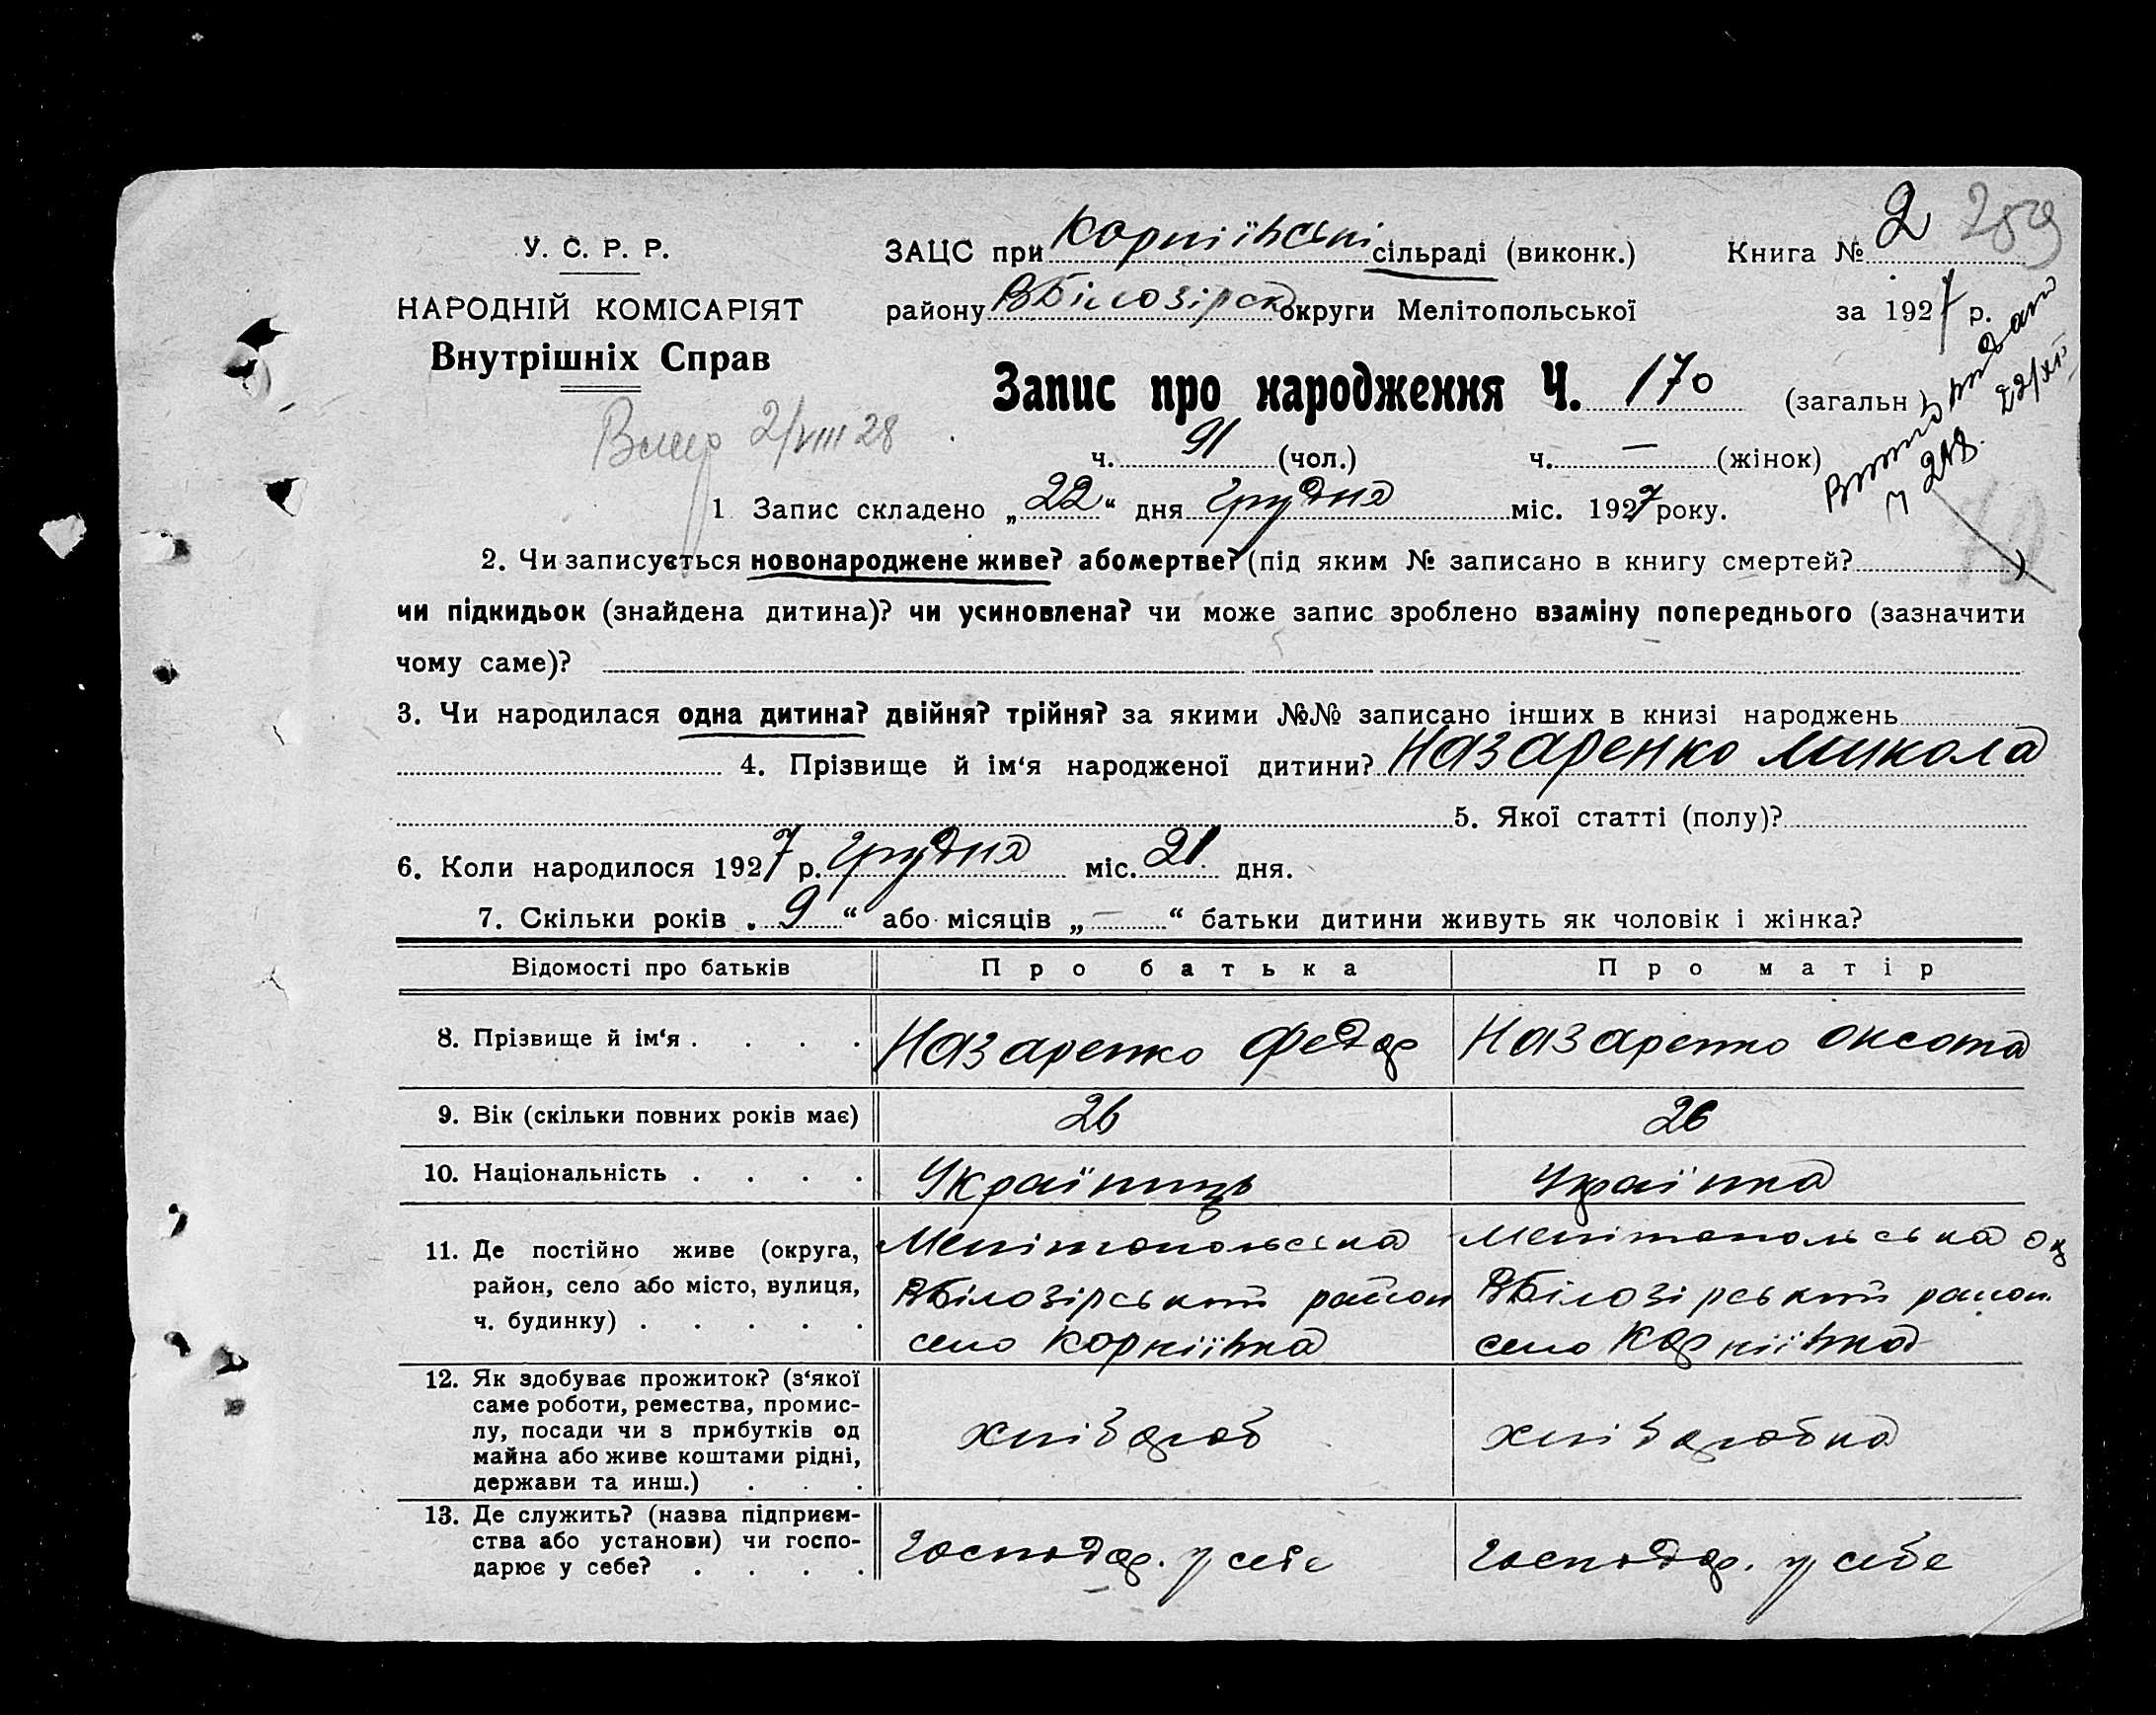 У. С. Р. Р.
НАРОДНІЙ КОМІСАРІЯТ
Внутрішніх Справ
ЗАЦС при Корніївські сільраді (виконк.)
Книга № 2 289
району ВБілозірск округи Мелітопольської
за 1927 р.
Запис про народження Ч. 170 (загальн)
22/XI
ч. 91 (чол.) ч. — (жінок)
2/VIII 28
1 Запис складено „22“ дня Грудня міс. 1927 року.
2. Чи записується новонароджене живе? або мертве? (під яким № записано в книгу смертей? )
чи підкидьок (знайдена дитина)? чи усиновлена? чи може запис зроблено взаміну попереднього (зазначити
чому саме)?
3. Чи народилася одна дитина? двійня? трійня? за якими №№ записано інших в книзі народжень
4. Прізвище й ім‘я народженої дитини? Назаренко Микола
5. Якої статті (полу)?
6. Коли народилося 1927 р. Грудня міс. 21 дня.
7. Скільки років „9“ або місяців „—“ батьки дитини живуть як чоловік і жінка?
Відомості про батьків Про батька Про матір
8. Прізвище й ім‘я . . . . Назаренко Федор Назаренко Оксана
9. Вік (скільки повних років має) 26 26
10. Національність . . . . Українць Українка
11. Де постійно живе (округа,
район, село або місто, вулиця,
ч. будинку) . . . . .
Мелітопольська
ВБілозірський район
село Корніївка
Мелітопольська ок
ВБілозірський район
село Корніївка
12. Як здобуває прожиток? (з‘якої
саме роботи, ремества, промис-
лу, посади чи з прибутків од
майна або живе коштами рідні,
держави та инш.) . . .
хлібороб
хліборобка
13. Де служить? (назва підприєм-
ства або установи) чи госпо-
дарює у себе? . . . .
Господар. у себе
Господар. у себе